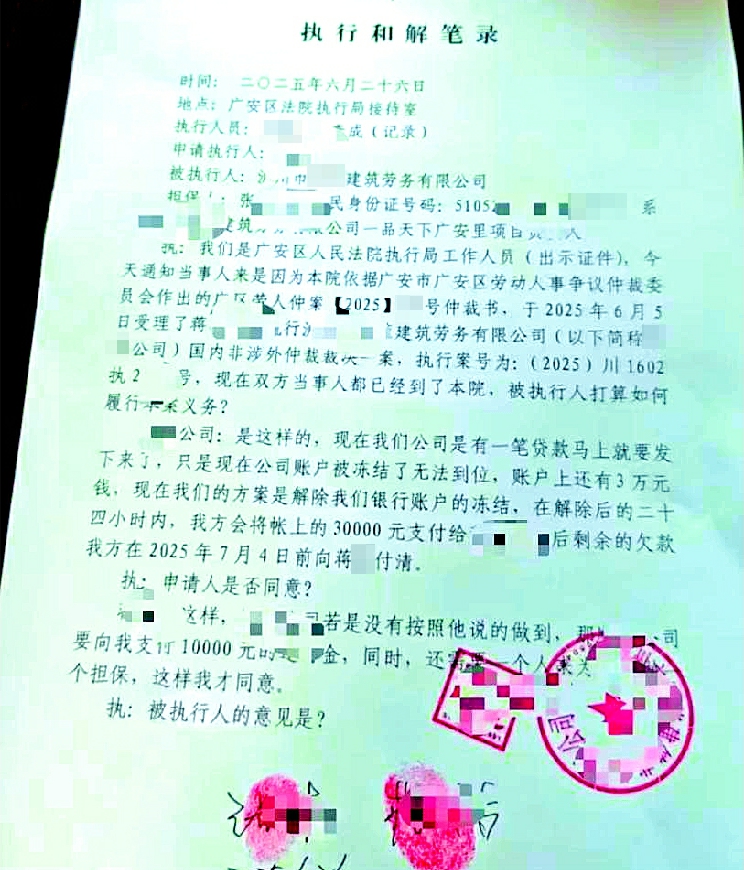 执行和解笔录
时间：二〇二五年六月二十六日
地点：广安区法院执行局接待室
执行人员： 成（记录）
申请执行人：
被执行人： 建筑劳务有限公司
担保人：张 民身份证号码：5105 系
建筑劳 有限公司一品天下广安里项目 人
执：我们是广安区人民法院执行局工作人员（出示证件），今
天通知当事人来是因为本院依据广安市广安区劳动人事争议仲裁委
员会作出的广 劳人仲案【2025】 号仲裁书，于2025年6月5
日受理了蒋 建筑劳务有限公司（以下简称
公司）国内非涉外仲裁裁决一案，执行案号为：（2025）川1602
执2 号，现在双方当事人都已经到了本院，被执行人打算如何
履行本案义务？
公司：是这样的，现在我们公司是有一笔贷款马上就要发
下来了，只是现在公司账户被冻结了无法到位，账户上还有3万元
钱，现在我们的方案是解除我们银行账户的冻结，在解除后的二十
四小时内，我方会将帐上的30000元支付给 后剩余的欠款
我方在2025年7月4日前向蒋 付清。
执：申请人是否同意？
这样， 若是没有按照他说的做到， 公司
要向我支付10000元的 金，同时，还需要一个人来
个担保，这样我才同意。
执：被执行人的意见是？
公司